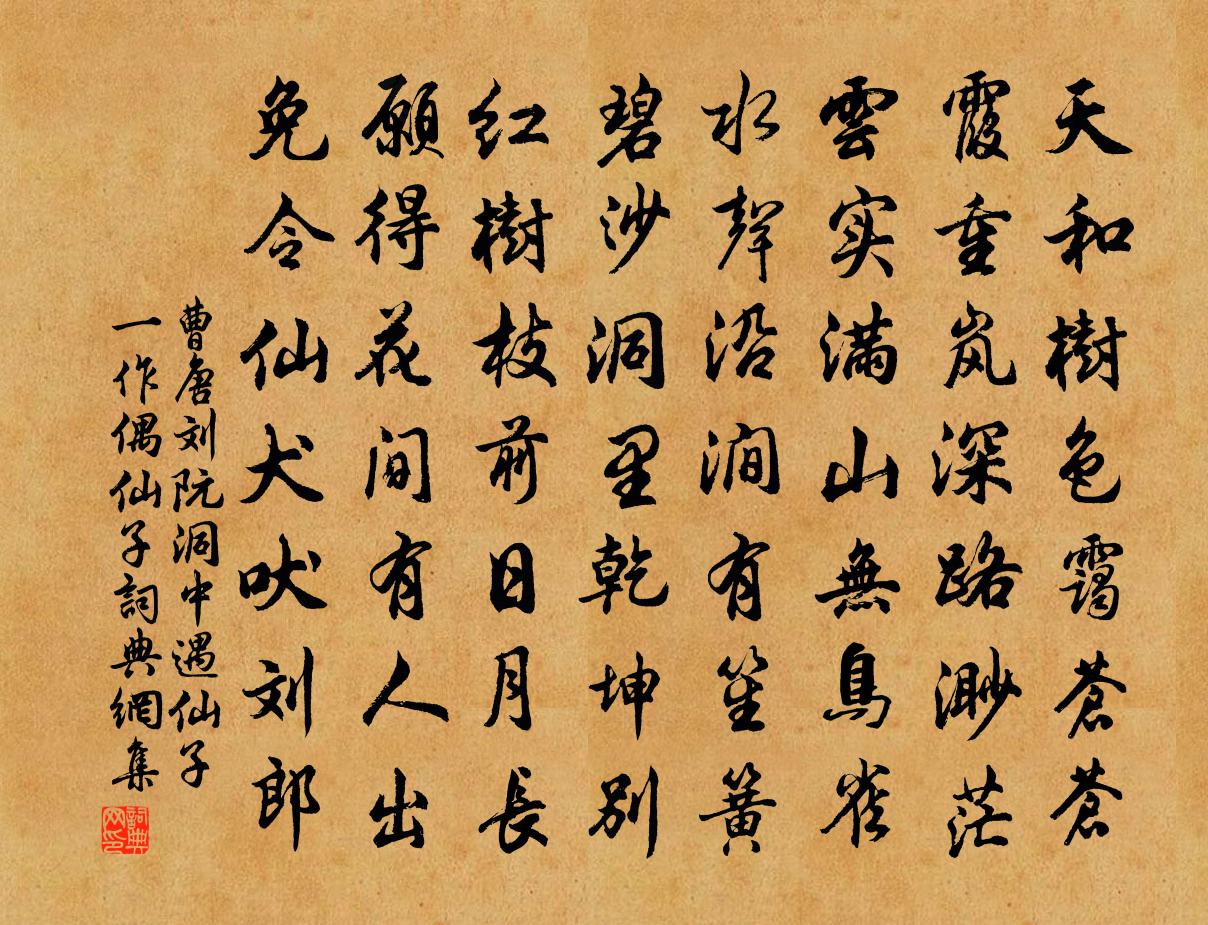 天和樹色靄蒼蒼
霞重岚深路渺茫
雲实满山無鳥雀
水聲沿澗有笙簧
碧沙洞里乾坤别
红樹枝前日月長
願得花间有人出
免令仙犬吠刘郎
曹唐刘阮洞中遇仙子
一作偶仙子詞典網集
詞典网印